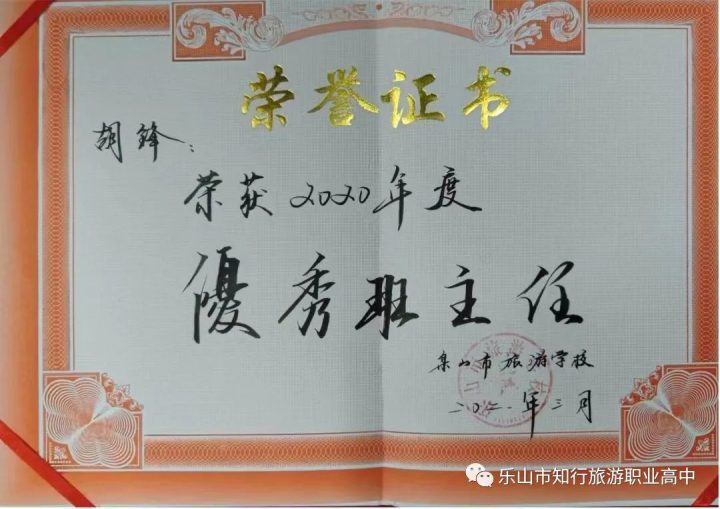 荣誉证书
胡锋：
荣获2020年度
優秀班主任
乐山市旅游学校
二〇二一年三月
乐山市知行旅游职业高中